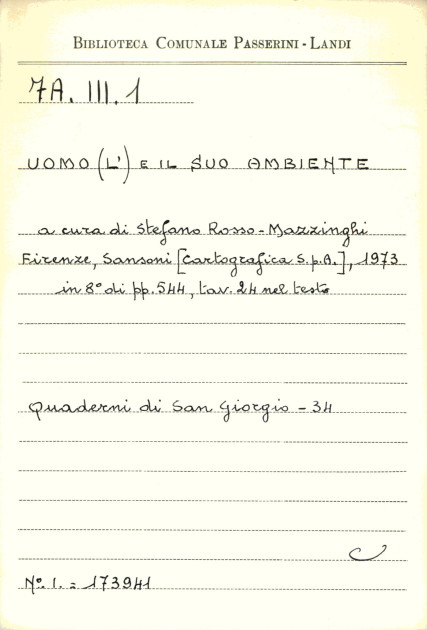 BIBLIOTECA COMUNALE PASSERINI-LANDI
7A. III. 1
UOMO (L') E IL SUO AMBIENTE
a cura di Stefano Rosso-Mazzinghi
Firenze, Sansoni [Cartografica S.p.A.], 1973
in 8° di pp. 544, tav. 24 nel testo
Quaderni di San Giorgio - 34
N°. I. = 173941